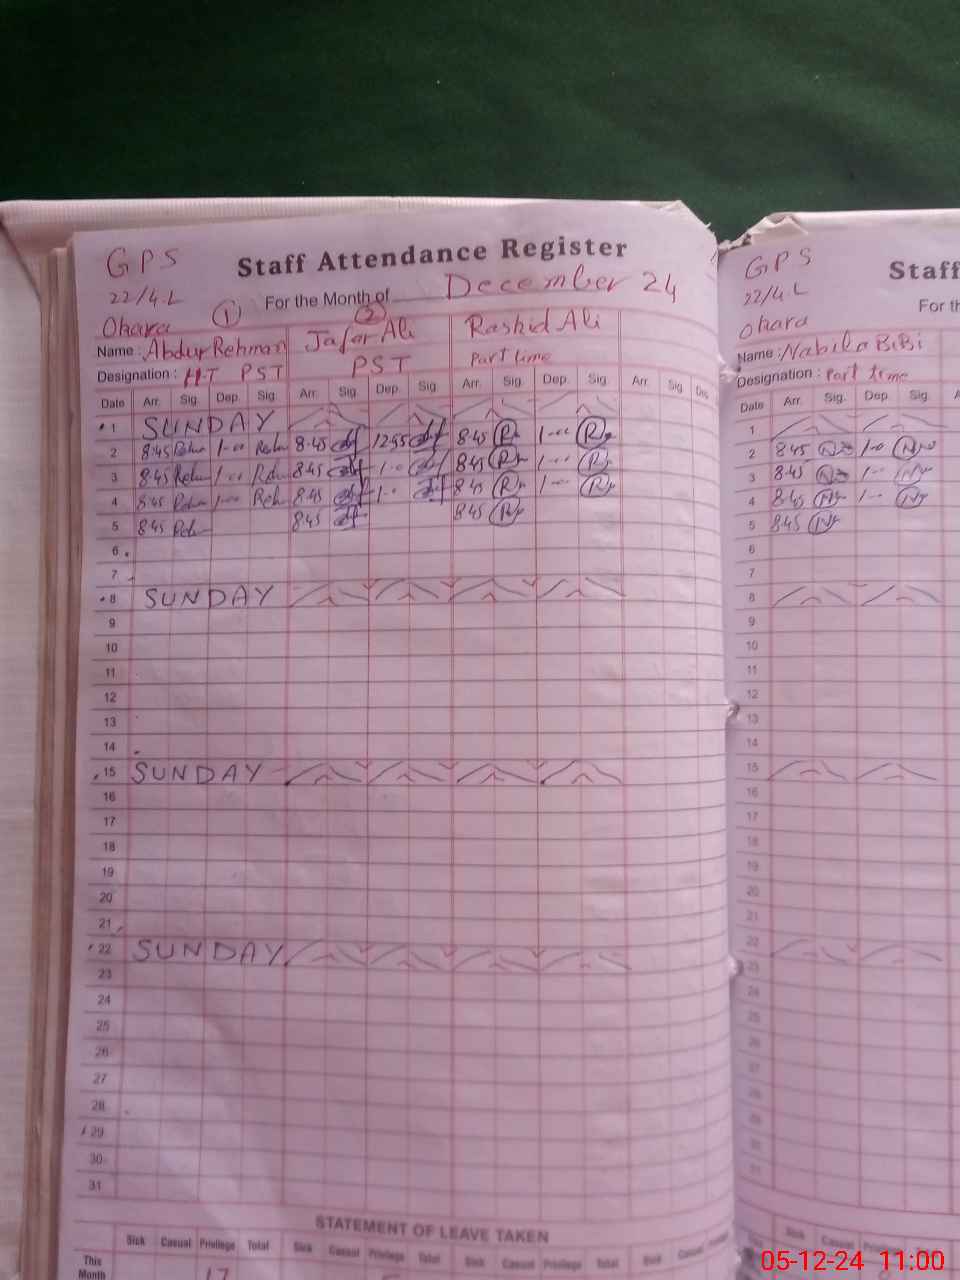 GPS
22/4.L
Ohara
Staff Attendance Register
For the Month of December 24
① ②
Name : Abdur Rehman Jafar Ali Rashid Ali
Designation : HT PST PST Part time
Date Arr. Sig. Dep. Sig. Arr. Sig. Dep. Sig. Arr. Sig. Dep. Sig. Arr. Sig. Dep.
1 SUNDAY
2 8:45 1-00 8-45 1255 8:45 R 1-00 R
3 8:45 1-00 8:45 1-0 8:45 R 1-00 R
4 8:45 1-00 8:45 1-0 8:45 R 1-00 R
5 8:45 8:45 8:45 R
6
7
8 SUNDAY
9
10
11
12
13
14
15 SUNDAY
16
17
18
19
20
21
22 SUNDAY
23
24
25
26
27
28
29
30
31
STATEMENT OF LEAVE TAKEN
Sick Casual Privilege Total Sick Casual Privilege Total Sick Casual Privilege Total Sick Casual
This Month 17
GPS
22/4.L
Ohara
Staff
For th
Name : Nabila BiBi
Designation : Part time
Date Arr. Sig. Dep. Sig.
1
2 8:45 N 1-0 N
3 8:45 N 1-0 N
4 8:45 N 1-0 N
5 8:45 N
6
7
8
9
10
11
12
13
14
15
16
17
18
19
20
21
22
23
24
25
26
27
28
29
30
31
Sick Casual Privilege
05-12-24 11:00